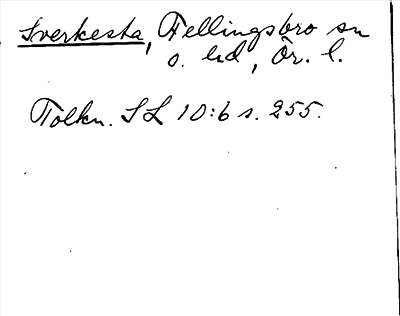 Sverkesta, Fellingsbro sn
o. hd, Ör. l.
Tolkn. SL 10:6 s. 255.